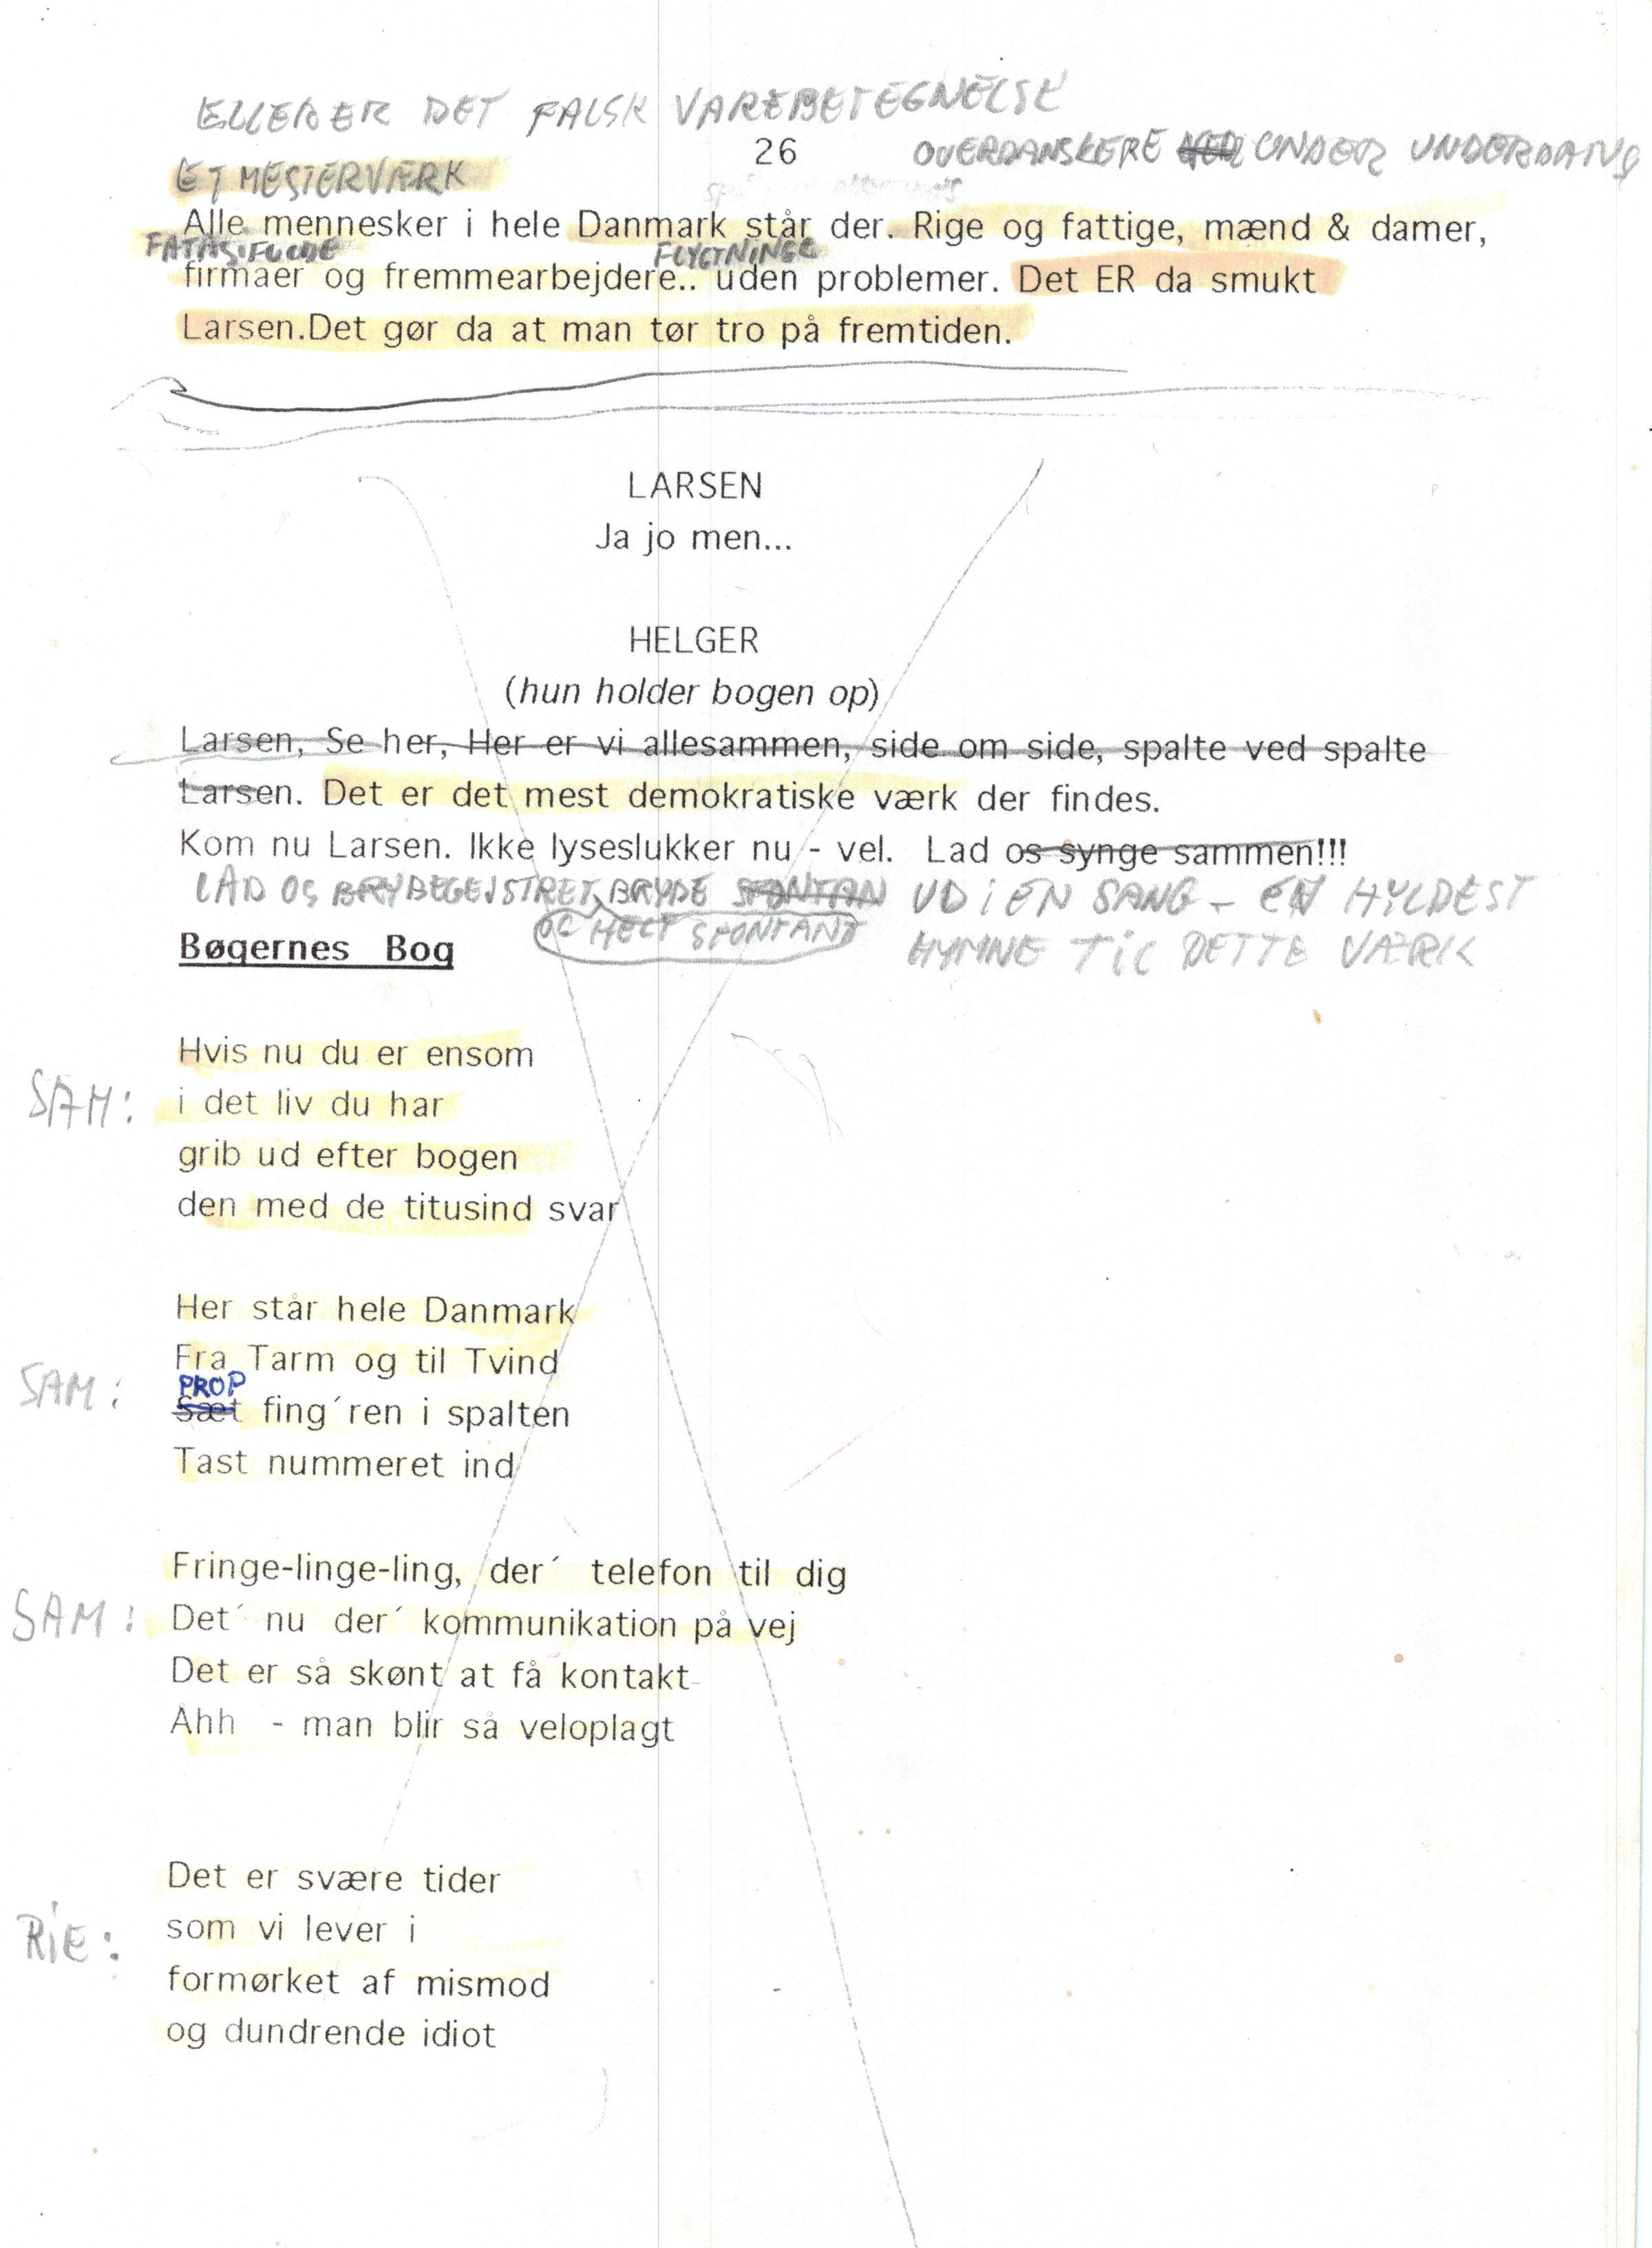 ELLER ER DET FALSK VAREBETEGNELSE
26
OVERDANSKERE UNDER
ET MESTERVÆRK
Alle mennesker i hele Danmark står der. Rige og fattige, mænd & damer,
FLYGTNINGE
firmaer og fremmearbejdere.. uden problemer. Det ER da smukt
Larsen.Det gør da at man tør tro på fremtiden.
LARSEN
Ja jo men...
HELGER
(hun holder bogen op)
Larsen, Se her, Her er vi allesammen, side om side, spalte ved spalte
Larsen. Det er det mest demokratiske værk der findes.
Kom nu Larsen. Ikke lyseslukker nu - vel. Lad os synge sammen!!!
LAD OS BEGEJSTRET BRYDE SPONTAN UD I EN SANG - EN HYLDEST
OG HELT SPONTANT
HYMNE TIL DETTE VÆRK
Bøgernes Bog
Hvis nu du er ensom
SAM: i det liv du har
grib ud efter bogen
den med de titusind svar
Her står hele Danmark
Fra Tarm og til Tvind
PROP
SAM: Sæt fing´ren i spalten
Tast nummeret ind
Fringe-linge-ling, der´ telefon til dig
SAM: Det´ nu der´ kommunikation på vej
Det er så skønt at få kontakt
Ahh - man blir så veloplagt
Det er svære tider
RIE: som vi lever i
formørket af mismod
og dundrende idiot